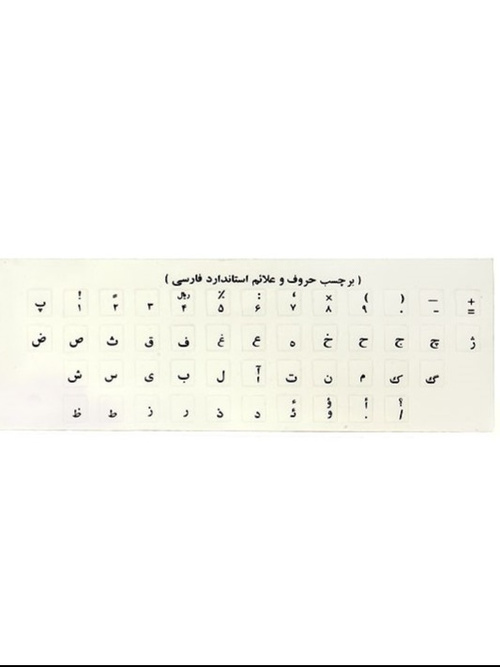 ( برچسب حروف و علائم استاندارد فارسی )
پ ! ۱ ۲ ۳ ریال ۴ ٪ ۵ : ۶ ، ۷ × ۸ ) ۹ ( ۰ — - + =
ض ص ث ق ف غ ع ه خ ح ج چ ژ
ش س ی ب ل آ ا ت ن م ک گ
ظ ط ز ر ذ د ء ئ ؤ و أ . ؟ /